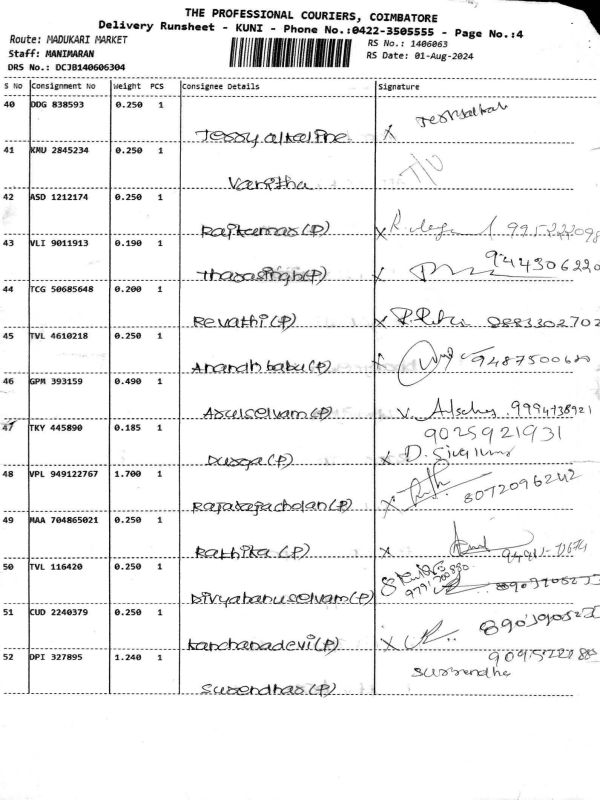 THE PROFESSIONAL COURIERS, COIMBATORE
Delivery Runsheet - KUNI - Phone No.:0422-3505555 - Page No.:4
Route: MADUKARI MARKET
RS No.: 1406063
Staff: MANIMARAN
RS Date: 01-Aug-2024
DRS No.: DCJB140606304
S No Consignment No Weight PCS Consignee Details Signature
40 DDG 838593 0.250 1
Jessy alkaline X
41 KMU 2845234 0.250 1
Vanitha
42 ASD 1212174 0.250 1
Rajkumar (P) X
43 VLI 9011913 0.190 1
Tharasingh (P) X 944306220
44 TCG 50685648 0.200 1
Revathi (P) X 8883302702
45 TVL 4610218 0.250 1
Anandh babu (P)
46 GPM 393159 0.490 1
Arulselvam (P) 9994738921
47 TKY 445890 0.185 1 9025921931
Durga (P) X D.
48 VPL 949122767 1.700 1
Rajarajacholan (P) X 8072096242
49 MAA 704865021 0.250 1
Rathika (P) X
50 TVL 116420 0.250 1
Divyabanuselvam (P)
51 CUD 2240379 0.250 1
Kanchanadevi (P) X
52 DPI 327895 1.240 1
Surendhar (P)